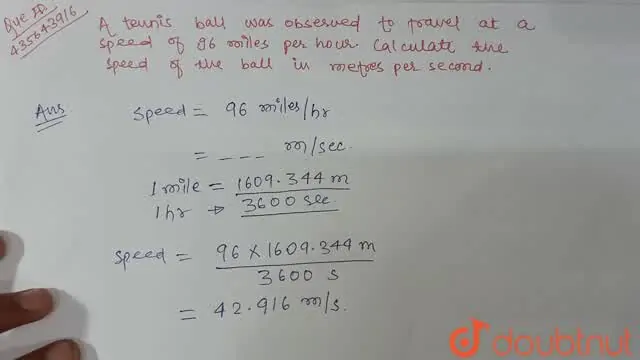 Que ID
435643916
A tennis ball was observed to travel at a
speed of 96 miles per hour. Calculate the
speed of the ball in metres per second.
Ans
speed = 96 miles/hr
= --- m/sec.
1 mile = 1609.344 m
1 hr → 3600 sec
speed = 96 × 1609.344 m
3600 s
= 42.916 m/s.
doubtnut